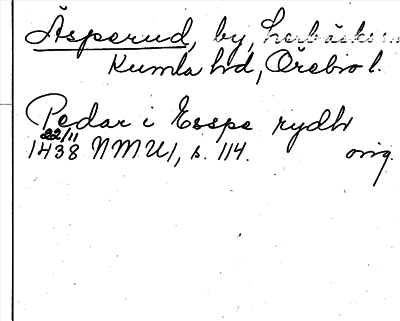 Äsperud, by, Lerbäcks sn
Kumla hd, Örebro l.
Pedar i Esspe rydh
22/11
1438 NMU 1, s. 114. orig.